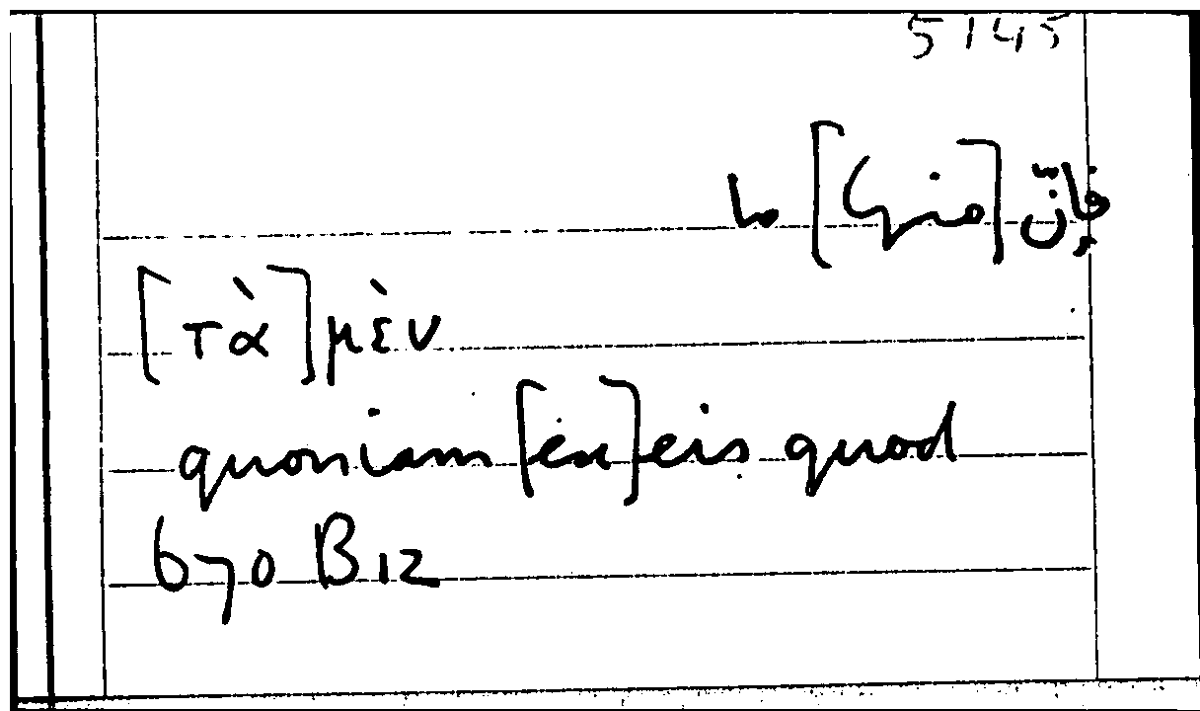 5145
فإنّ [منها] ما
[τὰ] μὲν
quoniam [ex] eis quod
670 B12